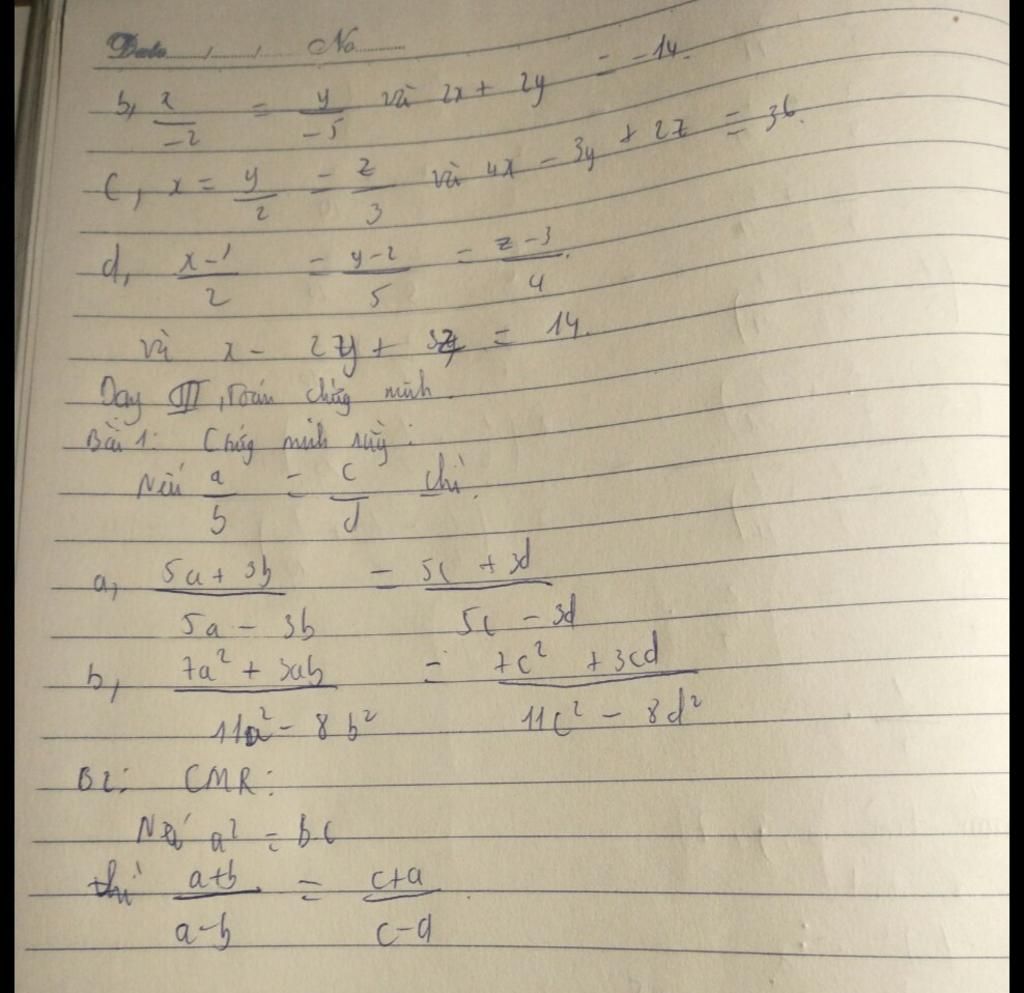 Date...../...../..... No............
b, x/-2 = y/-5 và 2x + 2y = -14.
c, x = y/2 = z/3 và 4x - 3y + 2z = 36.
d, x-1/2 = y-2/5 = z-3/4.
và x - 2y + 3z = 14.
Dạy III, Toán chứng minh.
Bài 1: Chứng minh rằng:
Nếu a/b = c/d thì.
a, 5a + 3b/5a - 3b = 5c + 3d/5c - 3d
b, 7a² + 3ab/11a² - 8b² = 7c² + 3cd/11c² - 8d²
B2: CMR:
Nếu a² = bc
thì a+b/a-b = c+a/c-a.